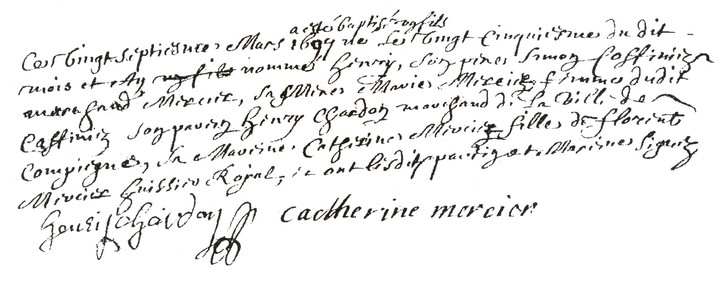 a esté baptisé un fils
Ce vingt septiesme Mars 1699 né Le vingt Cinquiesme du dit
mois et An un fils nommé henry, Son pere Simon Caffiniez
marchand Mercier, Sa Mere Marie Mercier femme dudit
Caffiniez Son parein Henry Chardon marchand de la Ville de
Compiegne, Sa Mareine Catherine Mercier fille de florent
Mercier huissier Royal, et ont lesdits parein et Mareine Signez
henry Chardon Catherine mercier